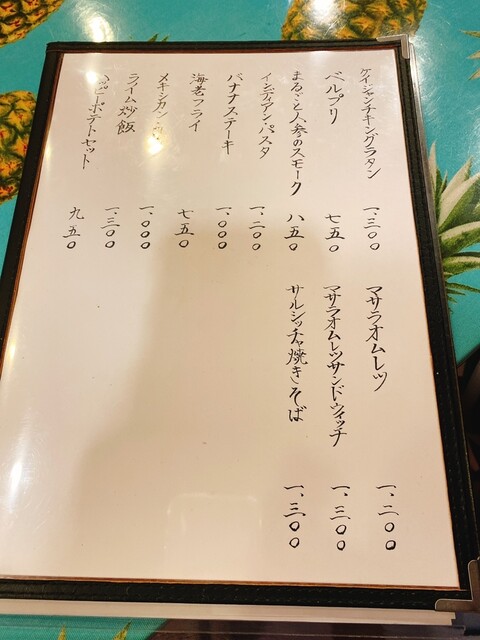 ケイジャンチキングラタン 一、三〇〇
ベルプリ 七五〇
まるごと人参のスモーク 八五〇
インディアンパスタ 一、二〇〇
バナナステーキ 一、〇〇〇
海老フライ 七五〇
メキシカン 一、〇〇〇
ライム炒飯 一、三〇〇
ポテトセット 九五〇
マサラオムレツ 一、二〇〇
マサラオムレツサンドウィッチ 一、三〇〇
サルシッチャ焼きそば 一、三〇〇